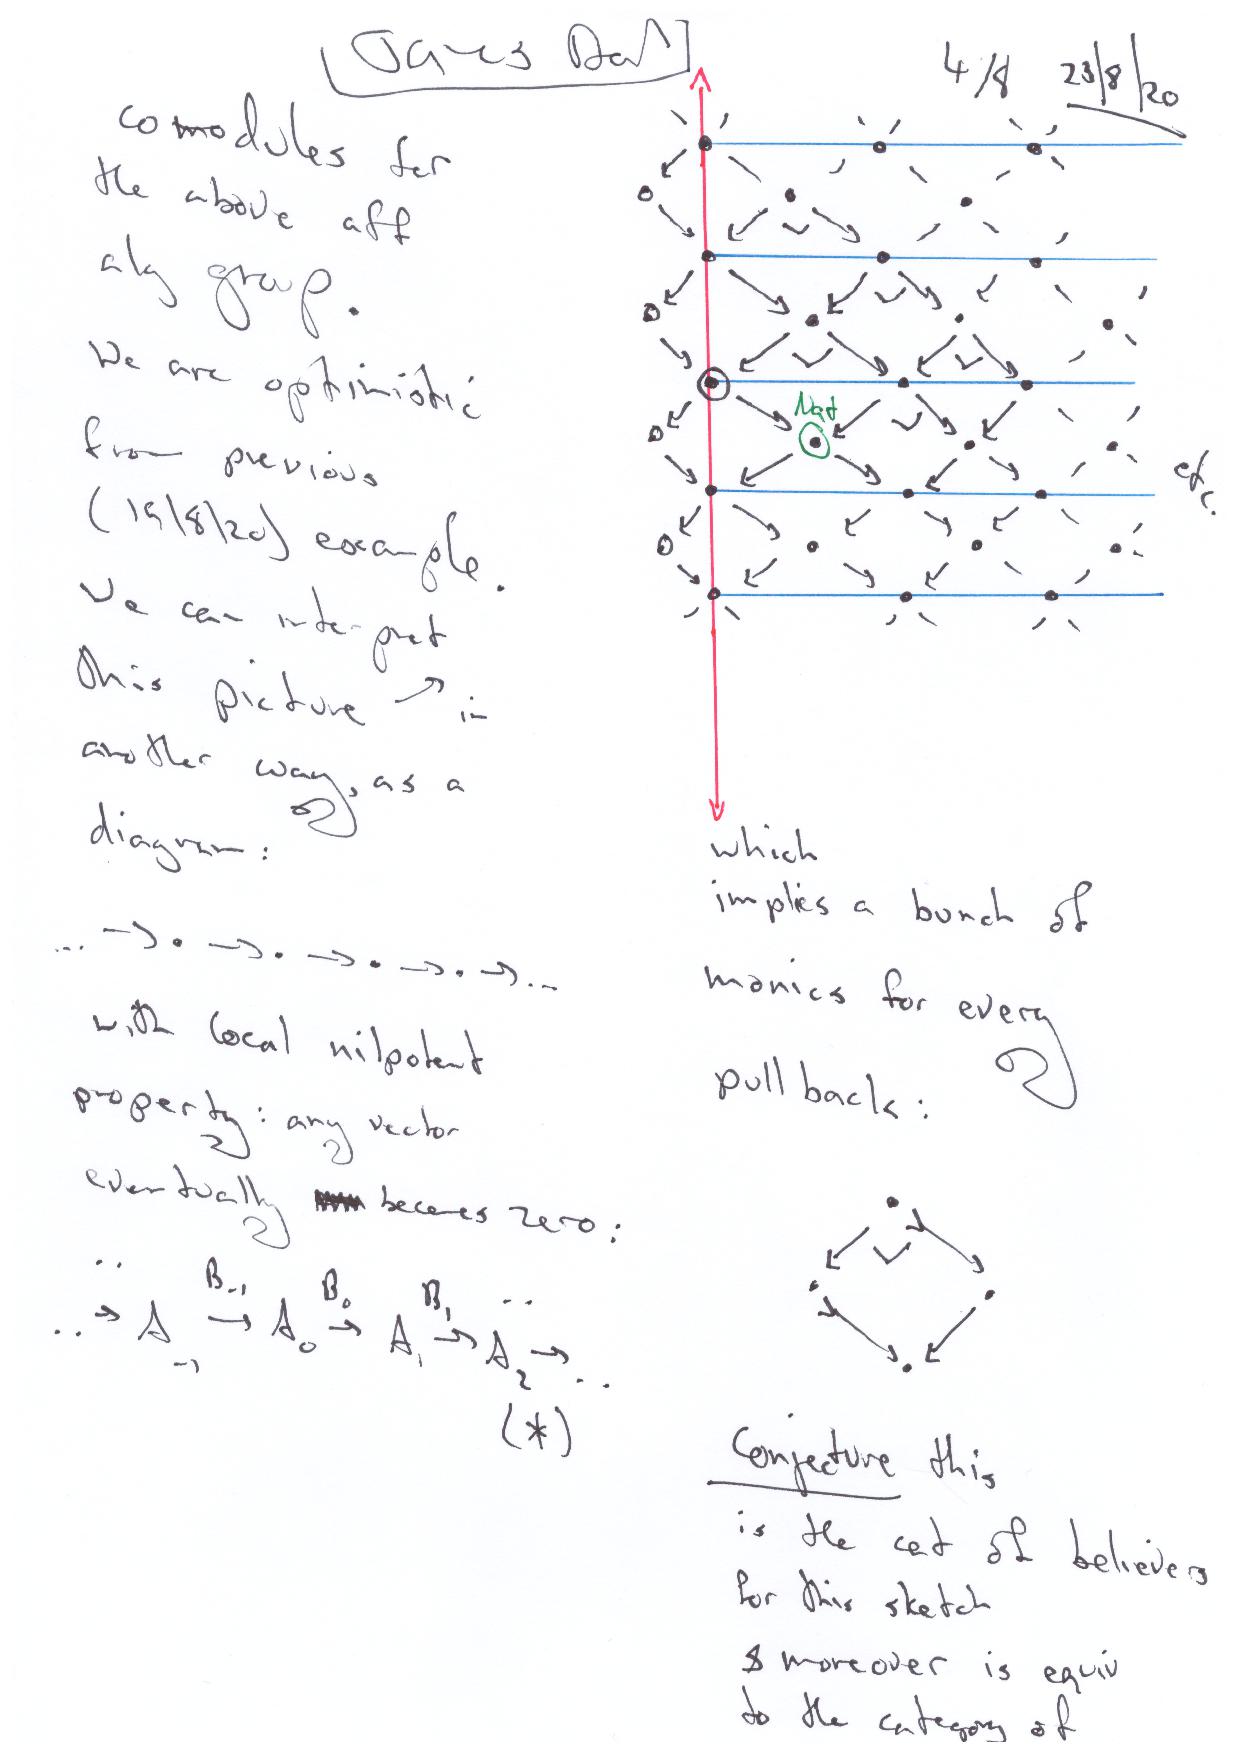 James Dol
4/8 23/8/20
comodules for
the above aff
alg group.
We are optimistic
from previous
(19/8/20) example.
We can interpret
this picture ↗ in
another way, as a
diagram:
... → . → . → . → . → ...
with local nilpotent
property: any vector
eventually becomes zero:
.. → A₋₁ → A₀ → A₁ → A₂ → ..
B₋₁ B₀ B₁
(*)
Nat
etc.
which
implies a bunch of
monics for every
pullback:
Conjecture this
is the cat of believers
for this sketch
& moreover is equiv
to the category of